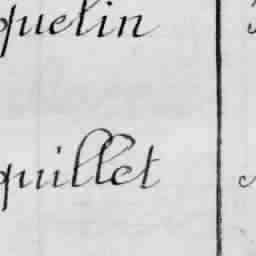 quelin
quillet